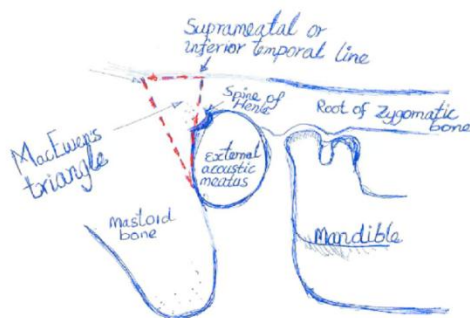 Suprameatal or
inferior temporal line
Spine of
Henle
Root of Zygomatic
bone
MacEwens
triangle
External
acoustic
meatus
Mastoid
bone
Mandible